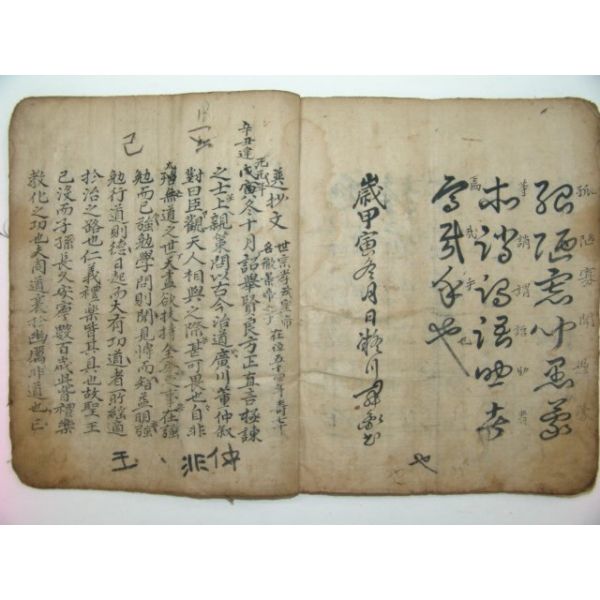 孤陋寡聞愚蒙
孤陋寡聞愚蒙
等誚謂語助者
等誚謂語助者
焉哉乎也
焉哉乎也
也
歲甲寅冬月日凝川
抄文 世宗孝武皇帝 名徹景帝子 在位五十四年壽七十
辛丑建元元年 冬十月詔舉賢良方正直言極諫
之士上親策問以古今治道廣川董仲舒
對曰臣觀天人相與之際甚可畏也自非
無道之世天盡欲扶持全安之事在强
勉而已强勉學問則聞見博而知益明强
勉行道則德日起而大有功道者所繇適
於治之路也仁義禮樂皆其具也故聖王
已没而子孫長久安寧數百歲此皆禮樂
教化之功也夫周道衰於幽厲非道也
己
仲
非
王